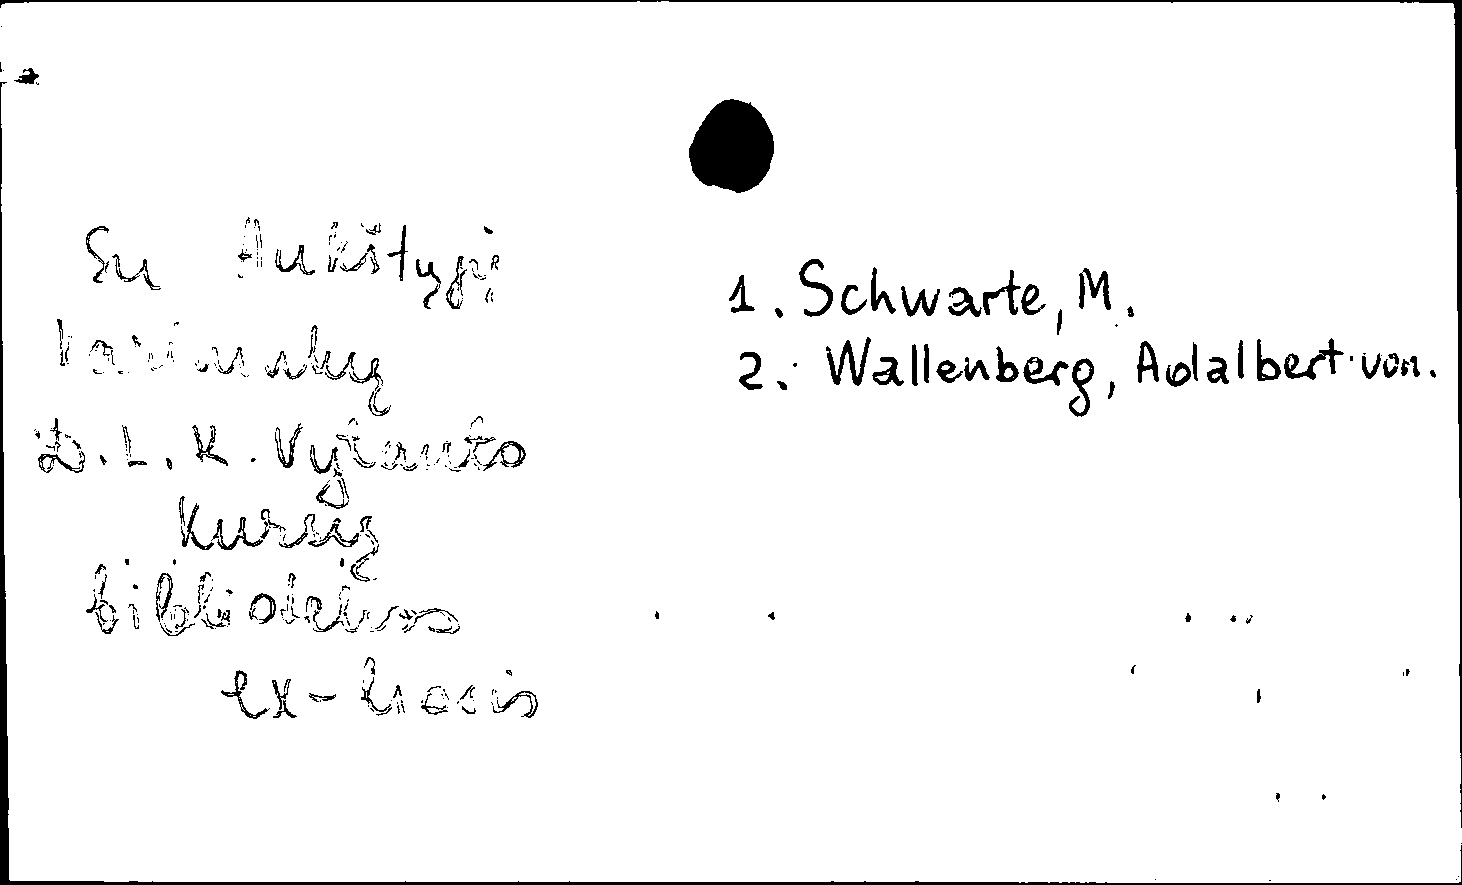 Su Aukštųjų
karininkų
D.L.K. Vytauto
kursų
bibliotekos
ex-libris
1. Schwarte, M.
2. Wallenberg, Adalbert von.